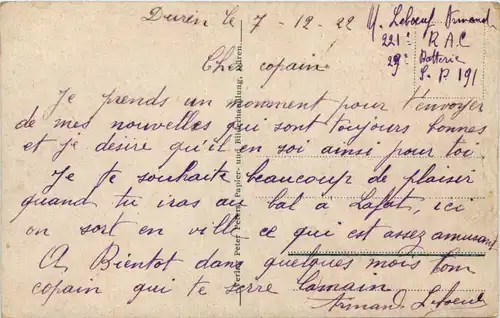 Duren le 7-12-22
M. Leboeuf Armand
221e R.A.C
29e Batterie
S.P 191
Cher copain
Je prends un momment pour t'envoyer
de mes nouvelles qui sont toujours bonnes
et je désire qu'il en soi ainsi pour toi
Je te souhaite beaucoup de plaisir
quand tu iras au bal à Lafat, ici
on sort en ville ce qui est assez amusant
A Bientot dans quelques mois ton
copain qui te serre lamain
Armand Leboeuf
Verlag Peter Papier- und Düren.